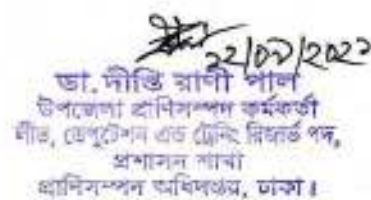 ২২/০৯/২০২২
ডা. দীপ্তি রাণী পাল
উপজেলা প্রাণিসম্পদ কর্মকর্তা
লীভ, ডেপুটেশন এন্ড ট্রেনিং রিজার্ভ পদ,
প্রশাসন শাখা
প্রাণিসম্পদ অধিদপ্তর, ঢাকা।